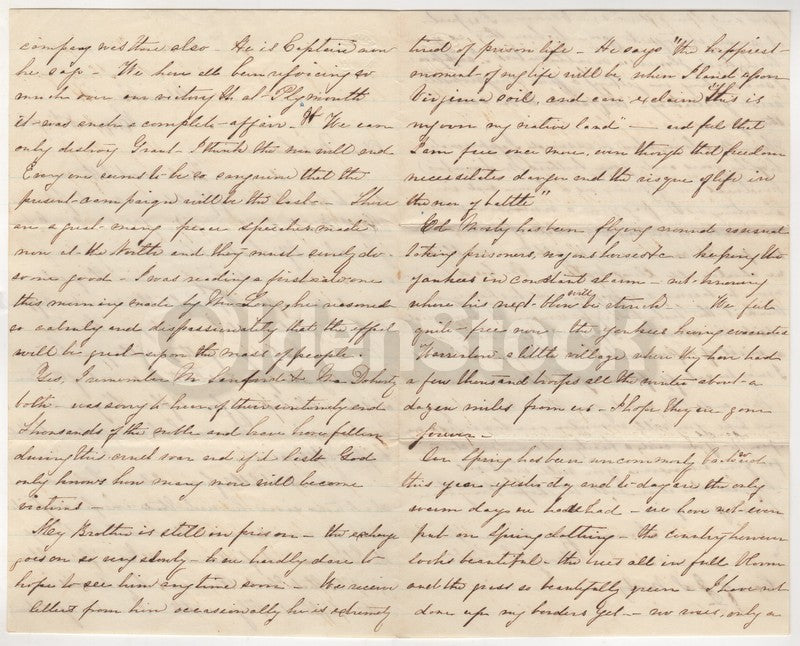 company was there also - He is Captain now
he says - We have all been rejoicing so
much over our victory at Plymouth
it was such a complete affair - If We can
only destroy Grant I think the war will end
Every one seems to be so sanguine that the
present campaign will be the last - There
are a great many peace speeches made
now at the North and they must surely do
some good - I was reading a first rate one
this morning made by Mr Long, he reasoned
so calmly and dispassionately that the effect
will be great upon the mass of people -
Yes, I remember Mr Sanford & Mr Doherty
both - was sorry to hear of their untimely end
Thousands of the noble and brave have fallen
during this cruel war and if it lasts God
only knows how many more will become
victims -
My Brother is still in prison - the exchange
goes on so very slowly - we hardly dare to
hope to see him anytime soon - We receive
letters from him occasionally he is extremely
tired of prison life - He says "the happiest
moment of my life will be, when I land upon
Virginia soil, and can exclaim "This is
my own my native land" - and feel that
I am free once more, even though that freedom
necessitates danger and the risque of life in
the van of battle"
Col Mosby has been flying around as usual
taking prisoners, wagons horses &c - keeping the
yankees in constant alarm - not knowing
where his next blow will be struck - We feel
quite free now - the yankees having evacuated
Warrenton a little village where they have had
a few thousand troops all the winter about a
dozen miles from us - I hope they are gone
forever -
Our Spring has been uncommonly backward
this year yesterday and to-day are the only
warm days we have had - we have not even
put on Spring clothing - The country however
looks beautiful - the trees all in full bloom
and the grass so beautifully green - I have not
done up my borders yet - no roses, only a
OldenStock